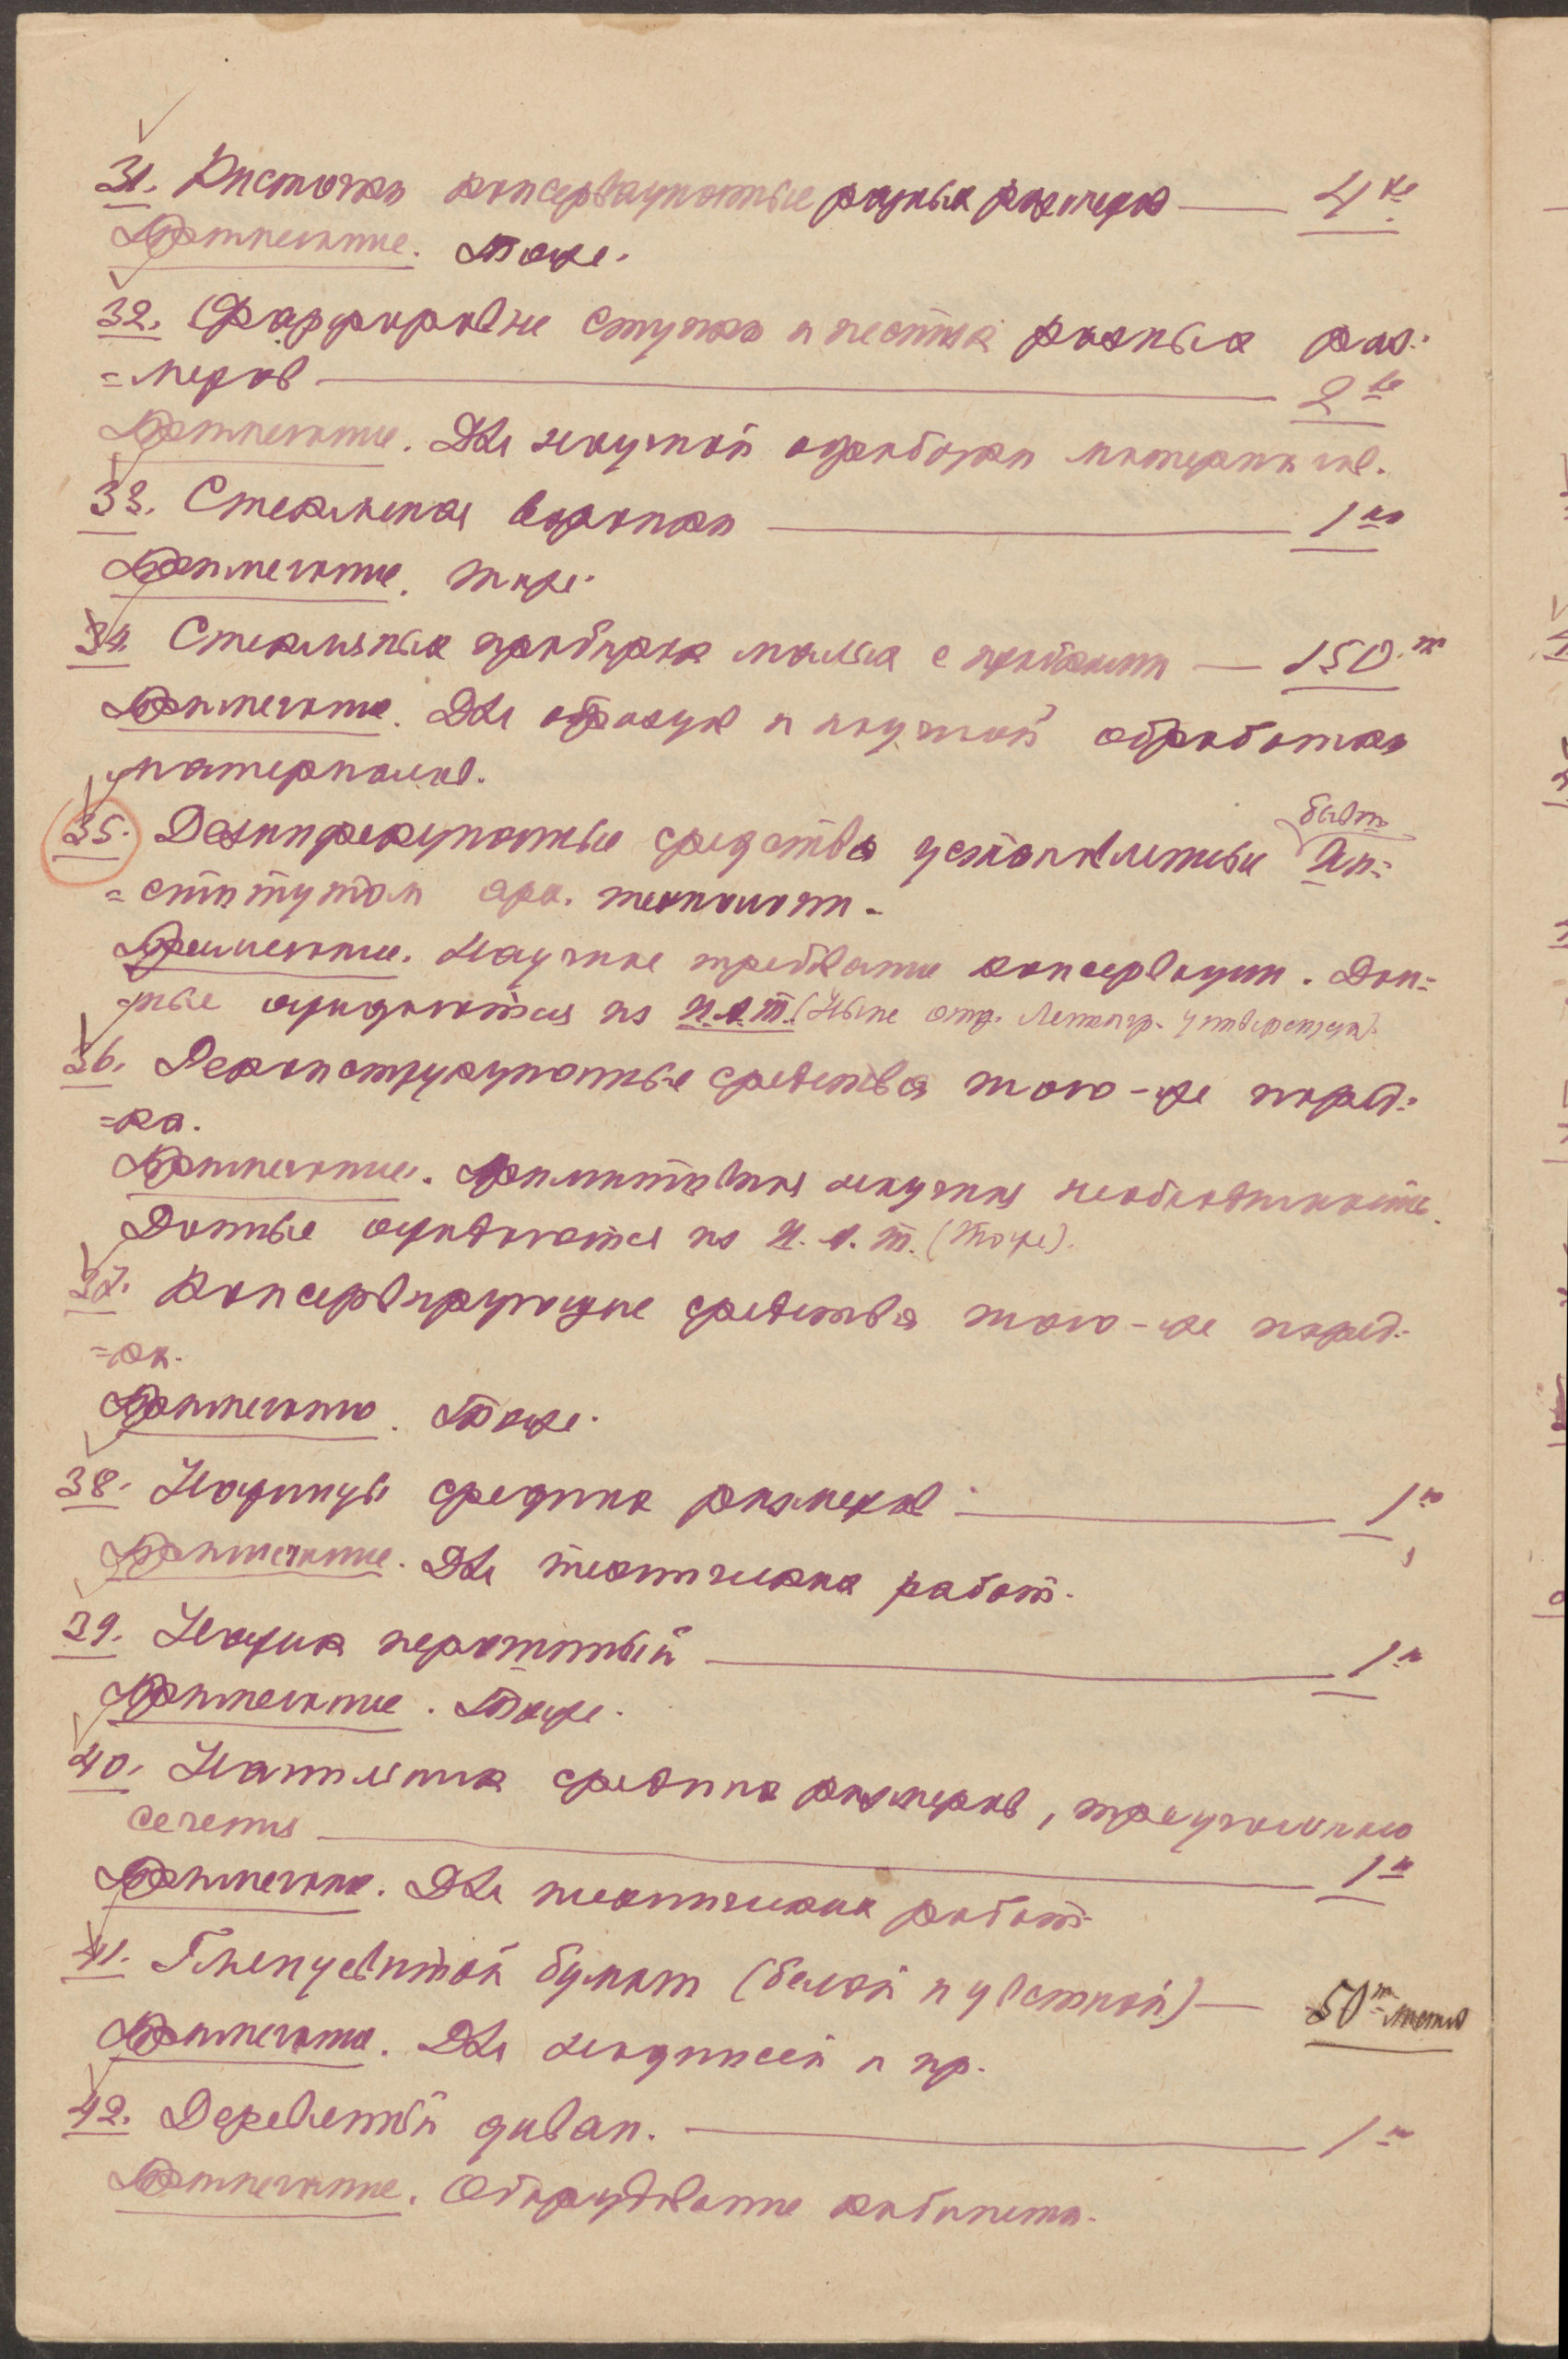 31. Кисточки консервационные разных размеров — 4 ке.
Примечание. Тоже.
32. Фарфоровые ступки и пестика разных раз=
=меров — 2 ке
Примечание. Для научной обработки материалов.
33. Стеклянная воронка — 1 на
Примечание. Тоже.
34. Стеклянных пробирок малых с пробками — 150. т
Примечание. Для образцов и научной обработки
материалов.
35. Дезинфекционные средства установленные бывш. Ин=
=ститутом арх. технологии.
Примечание. Научное требование консервации. Дан=
=ные ожидаются из И.А.Т. (Ныне отд. Ленингр. Университета).
36. Деконструкционные средства того-же поряд=
=ка.
Примечание. Примитивная научная необходимость.
Данные ожидаются из И.А.Т. (Тоже).
37. Консервирующие средства того-же поряд=
=ка.
Примечание. Тоже.
38. Ножницы средних размеров — 1 н
Примечание. Для технических работ.
39. Ножик перочинный — 1 н
Примечание. Тоже.
40. Напильник средних размеров, треугольного
сечения — 1 н
Примечание. Для технических работ.
41. бумаги (белой и цветной) — 50 т листов
Примечание. Для надписей и пр.
42. Деревянный диван. — 1 н
Примечание. Оборудование кабинета.